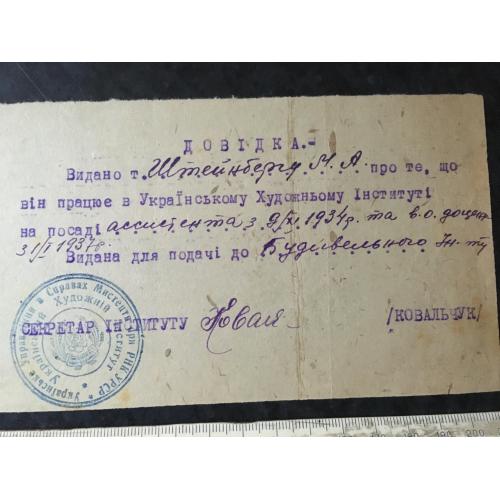 ДОВІДКА.-
Видано т. Штейнбергу М. А. про те, що
він працює в Українському Художньому Інституті
на посаді ассистента з 9/XI 1934р. та в.о. доцент
з 1/I 1937р.
Видана для подачі до Будівельного Ін-ту
СЕКРЕТАР ІНСТИТУТУ Ковал /КОВАЛЬЧУК/
Українське Управління в Справах Мистецтв при РНК УРСР
Український Художній Інститут